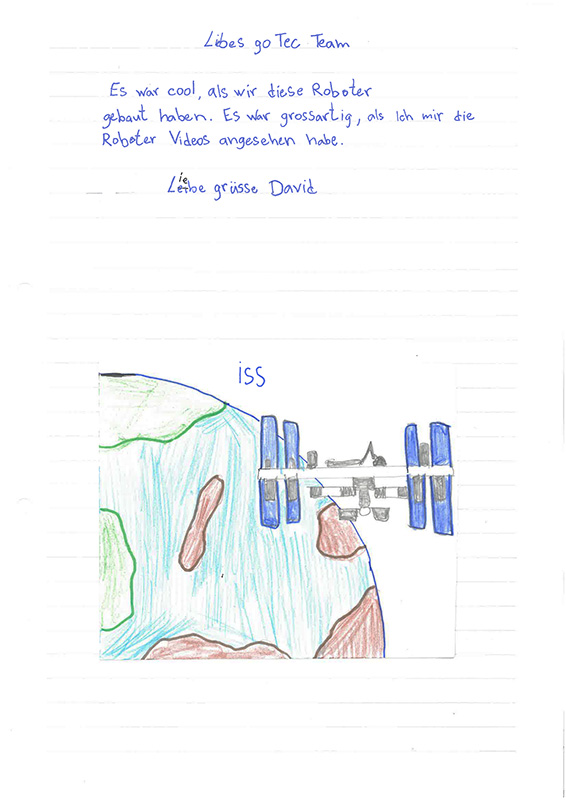 Libes go Tec Team
Es war cool, als wir diese Roboter
gebaut haben. Es war grossartig, als Ich mir die
Roboter Videos angesehen habe.
Liebe grüsse David
iss